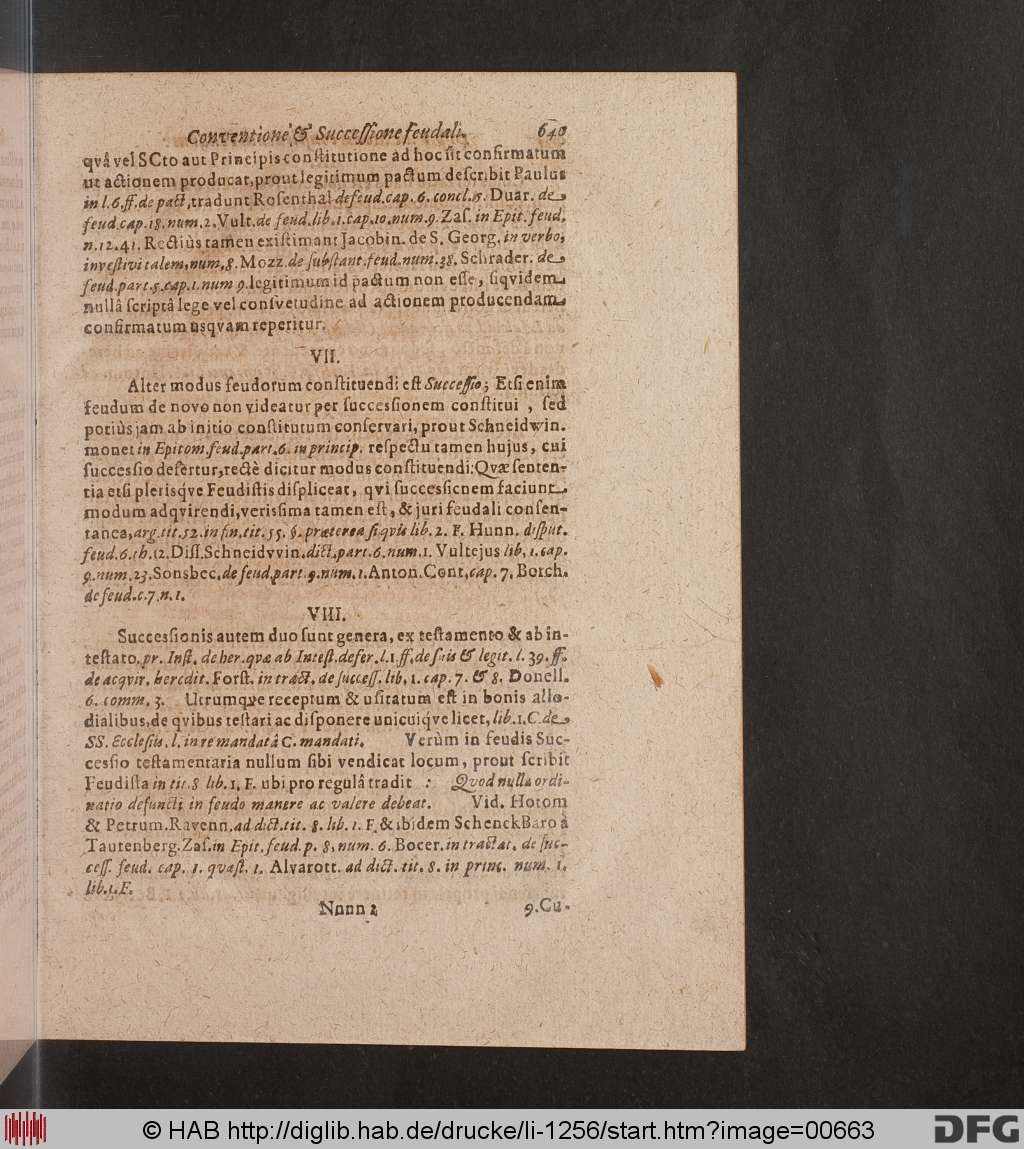 Conventione & Successione feudali. 640
qvâ vel SCto aut Principis constitutione ad hoc sit confirmatum
ut actionem producat, prout legitimum pactum describit Paulus
in l. 6. ff. de pact, tradunt Rosenthal de feud. cap. 6. concl. 15. Duar. de
feud. cap. 18. num. 2. Vult. de feud. lib. 1. cap. 10. num. 9. Zas. in Epit. feud.
n. 12. 41. Rectiùs tamen existimant Jacobin. de S. Georg. in verbo,
investivit talem, num, 8. Mozz. de substant. feud. num. 38. Schrader. de
feud. part. 5. cap. 1. num 9. legitimum id pactum non esse, siqvidem
nullâ scriptâ lege vel consvetudine ad actionem producendam
confirmatum usqvam reperitur.
VII.
Alter modus feudorum constituendi est Successio; Etsi enim
feudum de novo non videatur per successionem constitui, sed
potiùs jam ab initio constitutum conservari, prout Schneidwin.
monet in Epitom. feud. part. 6. in princip. respectu tamen hujus, cui
successio defertur, rectè dicitur modus constituendi: Qvæ senten-
tia etsi plerisqve Feudistis displiceat, qvi successicnem faciunt
modum adqvirendi, verissima tamen est, & juri feudali consen-
tanea, arg. tit. 52. in fin. tit. 55. §. præterea si qvis lib. 2. F. Hunn. disput.
feud. 6. th. 12. Diss. Schneidvvin. dict. part. 6. num. 1. Vultejus lib, 1. cap.
9. num. 23. Sonsbec. de feud. part. 9. num. 1. Anton. Cont. cap. 7. Borch.
de feud. c. 7. n. 1.
VIII.
Successionis autem duo sunt genera, ex testamento & ab in-
testato. pr. Inst. de her. qvæ ab Intest. defer. l. 1 ff. de suis & legit. l. 39. ff.
de acqvir. heredit. Forst. in tract, de success. lib, 1. cap. 7. & 8. Donell.
6. comm. 3. Utrumqve receptum & usitatum est in bonis allo-
dialibus, de qvibus testari ac disponere unicuiqve licet, lib. 1. C. de
SS. Ecclesiis. l. in re mandatâ C. mandati. Verùm in feudis Suc-
cessio testamentaria nullum sibi vendicat locum, prout scribit
Feudista in tit. 8 lib. 1. F. ubi pro regulâ tradit : Qvod nulla ordi-
natio defuncti in feudo manere ac valere debeat. Vid. Hotom
& Petrum. Ravenn. ad dict. tit. 8. lib. 1. F. & ibidem Schenck Baro à
Tautenberg. Zas. in Epit. feud. p. 8, num. 6. Bocer. in tractat. de suc-
cess. feud. cap. 1. quæst. 1. Alvarott. ad dict. tit. 8. in princ. num. 1.
lib. 1. F.
Nnnn 2 9. Cu-
© HAB http://diglib.hab.de/drucke/li-1256/start.htm?image=00663
DFG